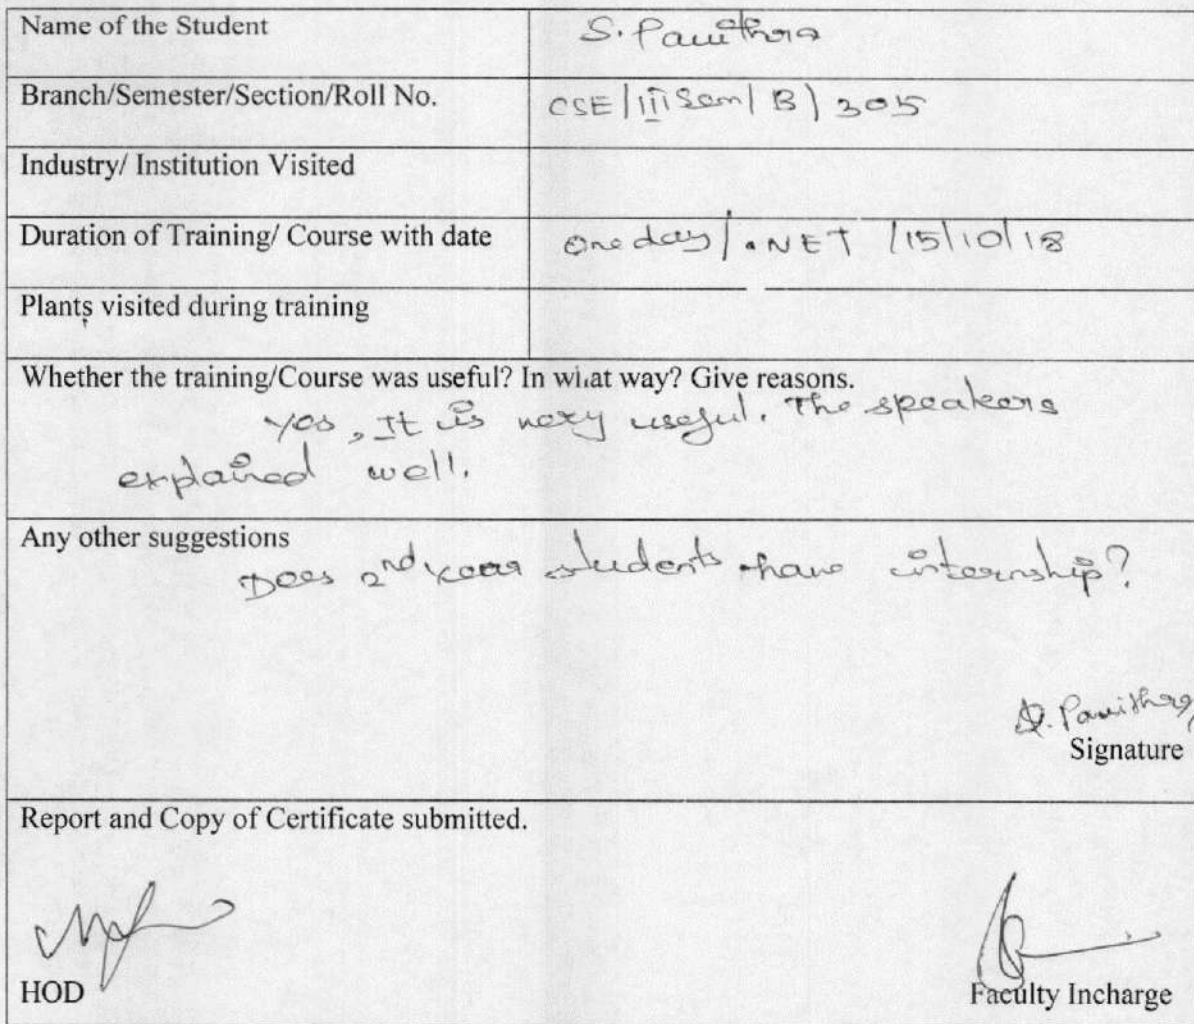 Name of the Student S. Pavithra
Branch/Semester/Section/Roll No. CSE/III Sem/B/305
Industry/ Institution Visited
Duration of Training/ Course with date One day/.NET /15/10/18
Plants visited during training
Whether the training/Course was useful? In what way? Give reasons.
Yes, It is very useful. The speakers
explained well.
Any other suggestions
Does 2nd year students have internship?
S. Pavithra
Signature
Report and Copy of Certificate submitted.
HOD Faculty Incharge